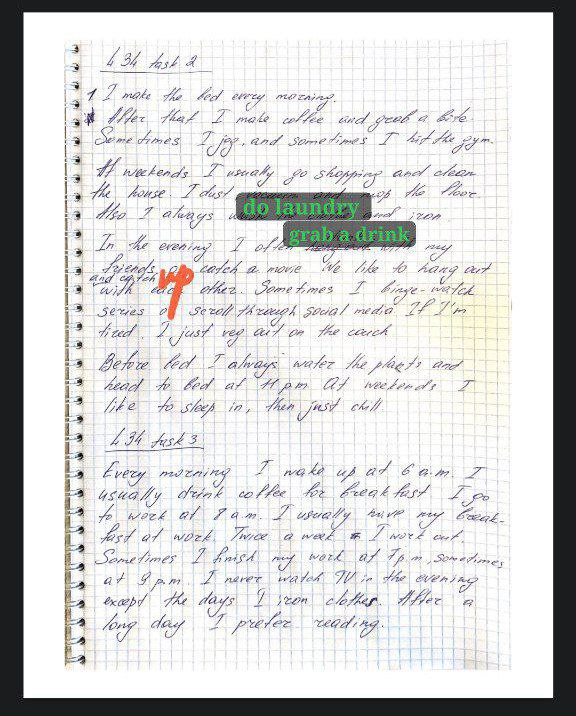 434 task 2
1 I make the bed every morning.
After that I make coffee and grab a bite.
Sometimes I jog, and sometimes I hit the gym.
At weekends I usually go shopping and clean
the house. I dust, vacuum and mop the floor.
do laundry
Also I always and iron.
grab a drink
In the evening I often my
friends or catch a movie. We like to hang out
and catch up
with each other. Sometimes I binge-watch
series or scroll through social media. If I'm
tired, I just veg out on the couch
Before bed I always water the plants and
head to bed at 11 pm. At weekends I
like to sleep in, then just chill.
434 task 3
Every morning I wake up at 6 a.m. I
usually drink coffee for breakfast. I go
to work at 8 a.m. I usually have my break-
fast at work. Twice a week I work out.
Sometimes I finish my work at 7 p.m, sometimes
at 9 p.m. I never watch TV in the evening
except the days I iron clothes. After a
long day I prefer reading.